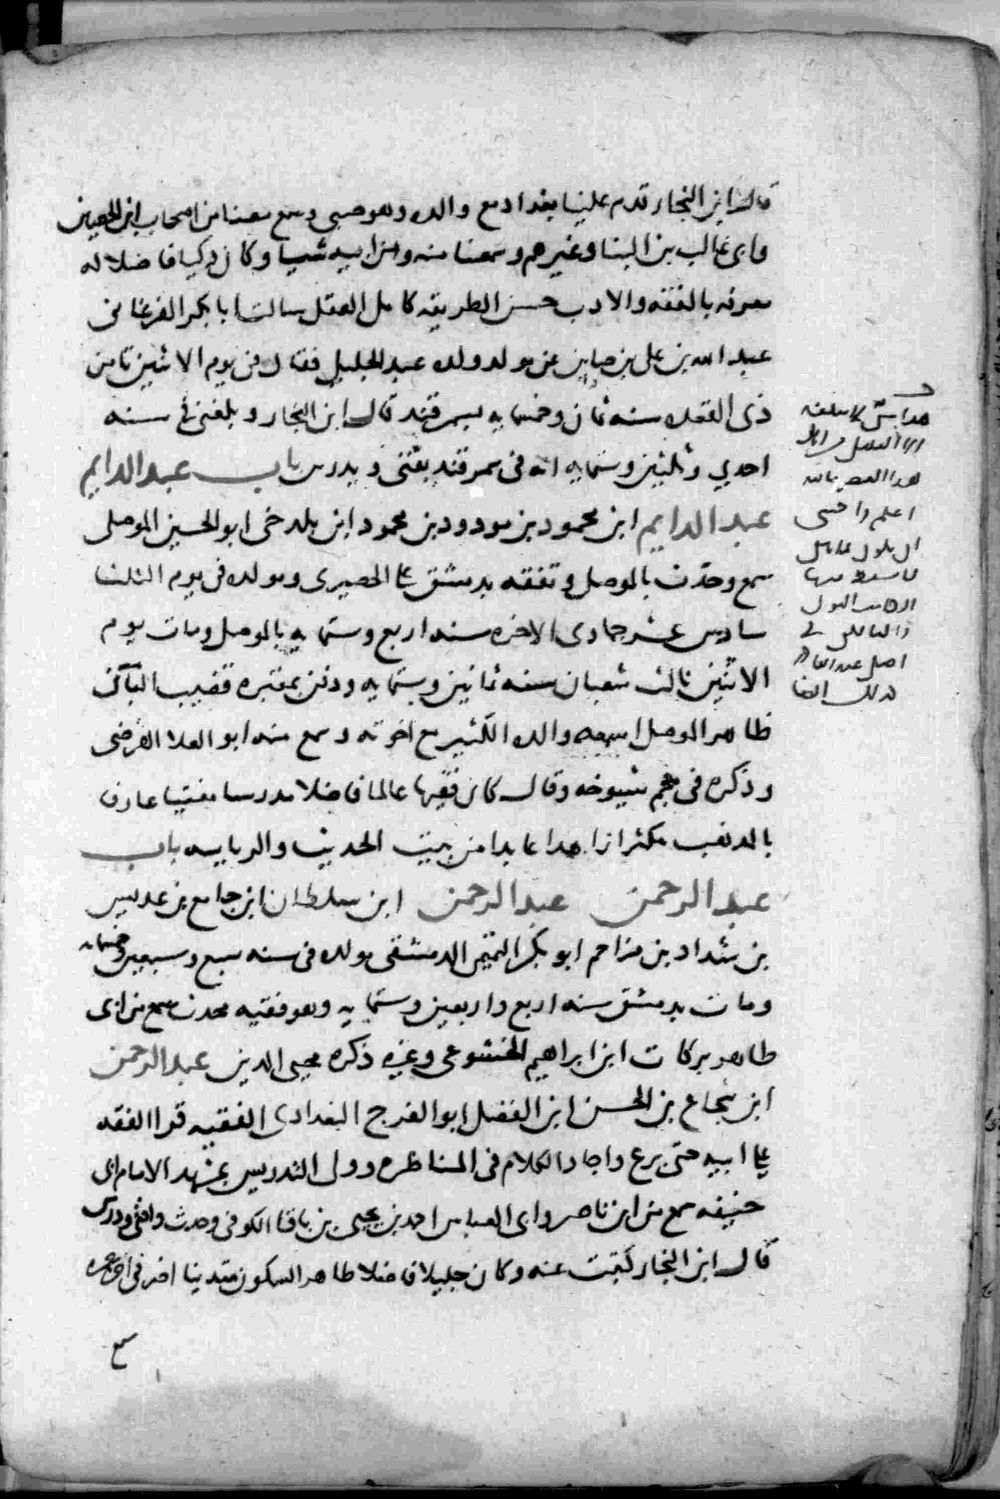 قال ابن النجار قدم علينا بغداد مع والده وهو صبي وسمع معنا من اصحاب ابن الحصين
وابى غالب بن البنا وغيرهم وسمعنا منه ومن ابيه شيا وكان ذكيا فاضلا له
معرفه بالفقه والادب حسن الطريقه كامل العقل سالت ابا بكر الفرغانى
عبد الله بن على بن صاين عن مولد ولده عبد الجليل فقال فى يوم الاثنين ثامن
ذى القعده سنه ثمان وخمسمايه بسمرقند قال ابن النجار وبلغنى فى سنه
احدي وثلثين وستمايه انه فى سمرقند يفتى ويدرس باب عبد الدايم
عبد الدايم ابن محمود بن مودود بن محمود ابن بلدجى ابو الحسين الموصلى
سمع وحدث بالموصل وتفقه بدمشق على الحصيرى ومولده فى يوم الثلثا
سادس عشر جمادى الاخره سنه اربع وستمايه بالموصل ومات يوم
الاثنين ثالث شعبان سنه ثمانين وستمايه ودفن بمقبره قضيب البان
ظاهر الموصل اسمعه والده الكثير مع اخوته وسمع منه ابو العلا الفرضى
وذكره فى معجم شيوخه وقال كان فقيها عالما فاضلا مدرسا مفتيا عارفا
بالمذهب مكثرا زاهدا عابدا من بيت الحديث والريايسه باب
عبد الرحمن عبد الرحمن ابن سلطان ابن جامع بن عديس
بن شداد بن مزاحم ابو بكر التميمى الدمشقى مولده فى سنه سبع وسبعين وخمسمايه
ومات بدمشق سنه اربع واربعين وستمايه وهو فقيه محدث سمع من ابى
طاهر بركات ابن ابراهيم الخشوعى وغيره ذكره محيى الدين عبد الرحمن
ابن شجاع بن الحسن ابن الفضل ابو الفرج البغدادى الفقيه قرا الفقه
على ابيه حتى برع واجاد الكلام فى المناظره وولى التدريس بمشهد الامام ابى
حنيفه سمع من ابن ناصر وابى العباس احمد بن يحيى بن ناقا الكوفى وحدث وافتى ودرس
قال ابن النجار كتبت عنه وكان جليلا فاضلا طاهر السكون متدينا اضر فى اخر عمره
هذا العصر
اعلم
اصل عبد القادر
كذلك ايضا
سمع